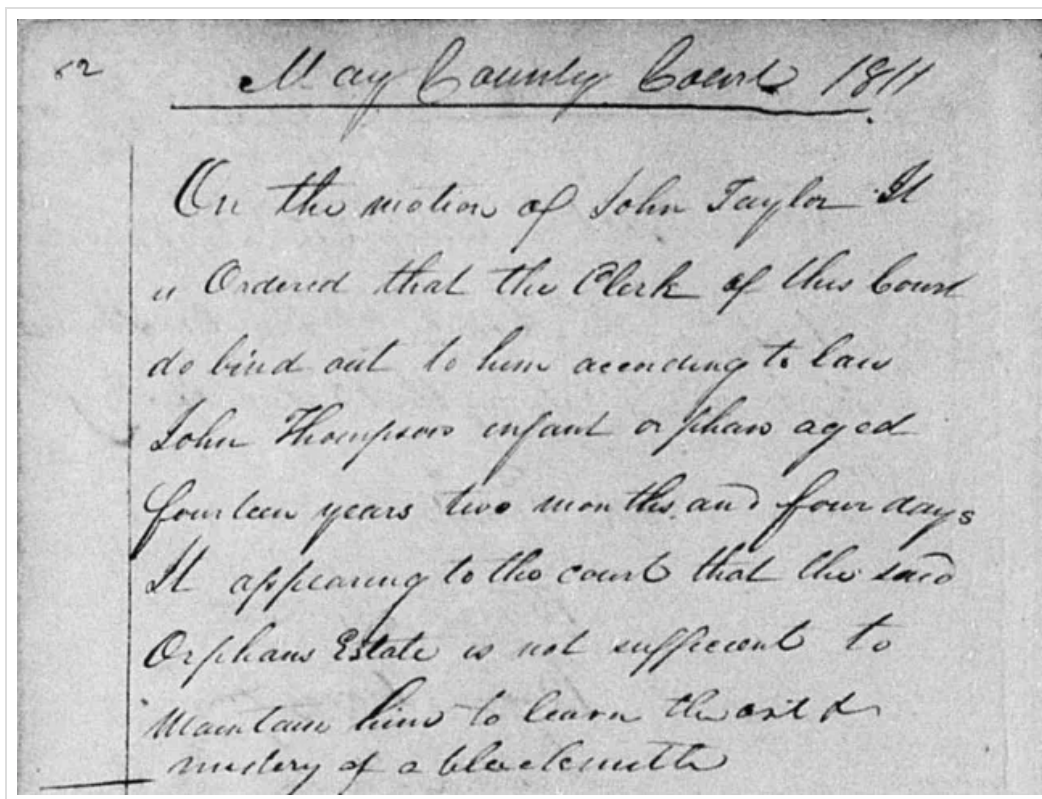 62
May County Court 1811
On the motion of John Taylor It
is Ordered that the Clerk of this Court
do bind out to him according to law
John Thompson infant orphan aged
fourteen years two months and four days
It appearing to the court that the said
Orphans Estate is not sufficient to
Maintain him to learn the art &
mistery of a blacksmith